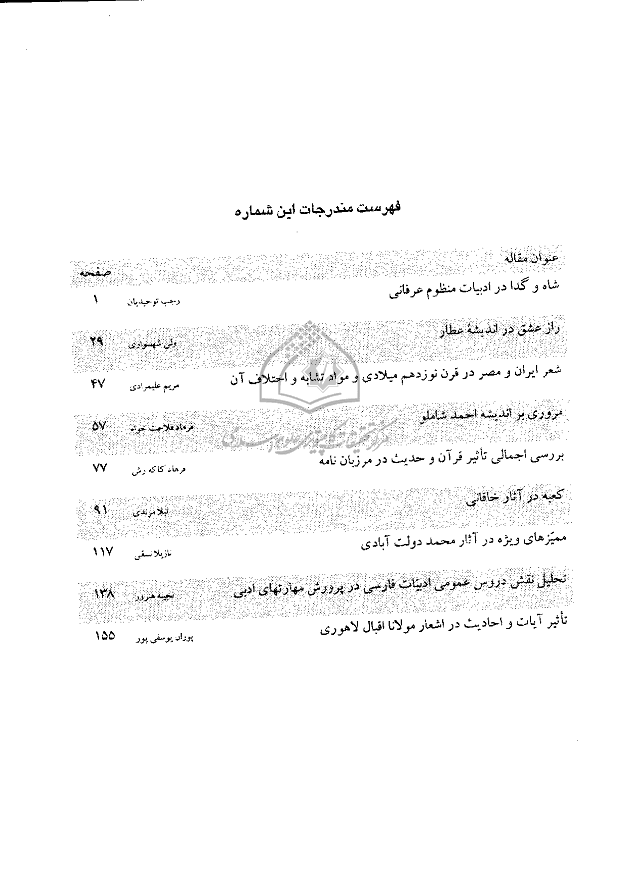 فهرست مندرجات این شماره
عنوان مقاله صفحه
شاه و گدا در ادبیات منظوم عرفانی رجب توحیدیان ۱
راز عشق در اندیشهٔ عطار ولی شهسواری ۲۹
شعر ایران و مصر در قرن نوزدهم میلادی و مواد تشابه و اختلاف آن مریم علیمرادی ۴۷
مروری بر اندیشه احمد شاملو فرهاد فلاحت خواه ۵۷
بررسی اجمالی تأثیر قرآن و حدیث در مرزبان نامه فرهاد کاکه رش ۷۷
کعبه در آثار خاقانی لیلا مرندی ۹۱
ممیّزهای ویژه در آثار محمد دولت آبادی نازیلا سقی ۱۱۷
تحلیل نقش دروس عمومی ادبیّات فارسی در پرورش مهارتهای ادبی نجیبه هنرور ۱۳۸
تأثیر آیات و احادیث در اشعار مولانا اقبال لاهوری پوران یوسفی پور ۱۵۵